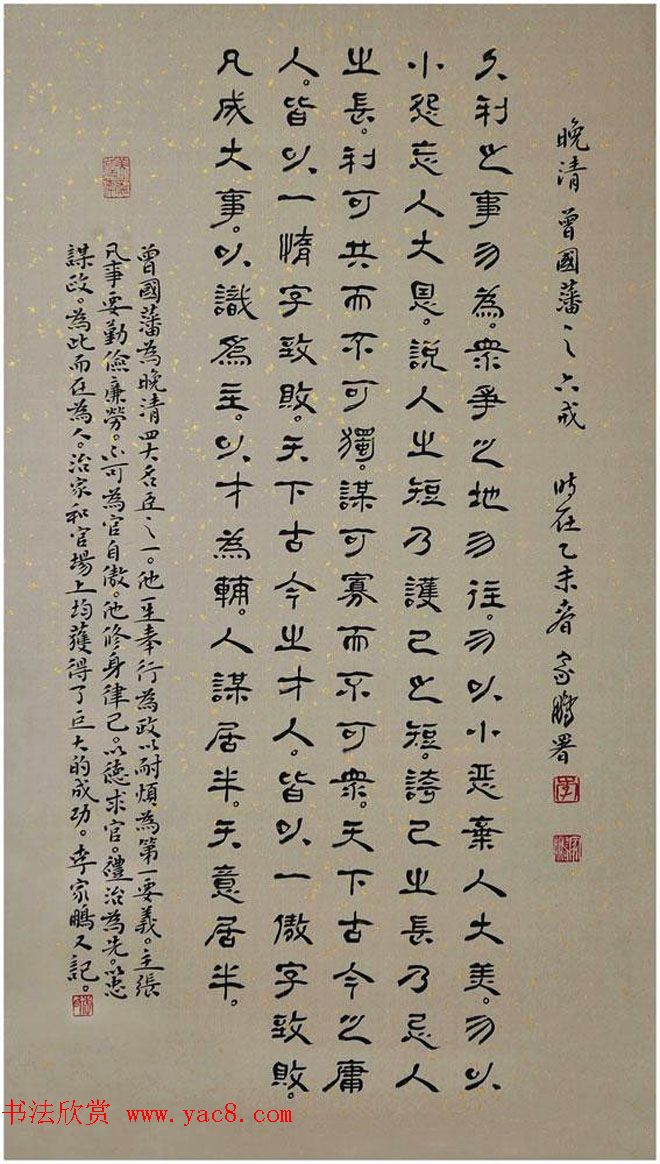 晚清 曾國藩之六戒 時在乙未春家鵬署
久利之事勿為。衆爭之地勿往。勿以小惡棄人大美。勿以
小怨忘人大恩。説人之短乃護己之短。誇己之長乃忌人
之長。利可共而不可獨。謀可寡而不可衆。天下古今之庸
人。皆以一惰字致敗。天下古今之才人。皆以一傲字致敗。
凡成大事。以識爲主。以才為輔。人謀居半。天意居半。
曾國藩為晚清四大名臣之一。他一生奉行為政以耐煩為第一要義。主張
凡事要勤儉廉勞。不可為官自傲。他修身律己。以德求官。禮治為先。以忠
謀政。為此而在為人。治家和官場上均獲得了巨大的成功。李家鵬又記。
书法欣赏 www.yac8.com